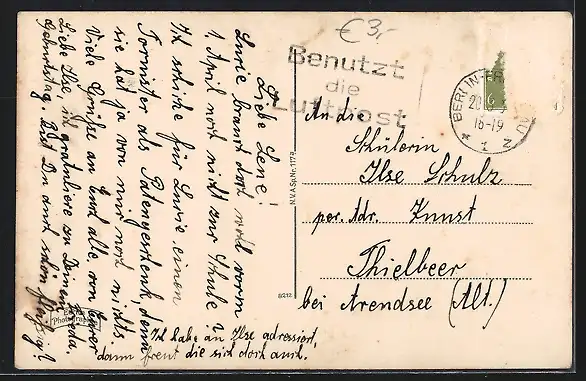 Liebe Lene!
Lucie braucht doch wohl vorm
1. April noch nicht zur Schule?
Ich schicke für Lucie einen
Tornister als Patengeschenk, denn
sie hat ja von mir noch nichts.
Viele Grüße an Euch alle, von Eurer
Frieda.
Liebe Ilse, ich gratuliere zu Deinem
Geburtstag. Bist Du auch schön fleißig?
Ich habe an Ilse adressiert,
dann freut die sich doch auch.
Echte
Photographie
N.V.A.Sp.Nr. 117a
8/212
€ 3,-
Benutzt
die
Luftpost
BERLIN-FR AU
20
16-19
* 1 z
6
An die
Schülerin
Ilse Schulz
per. Adr. Kunst
Thielbeer
bei Arendsee (Alt.)